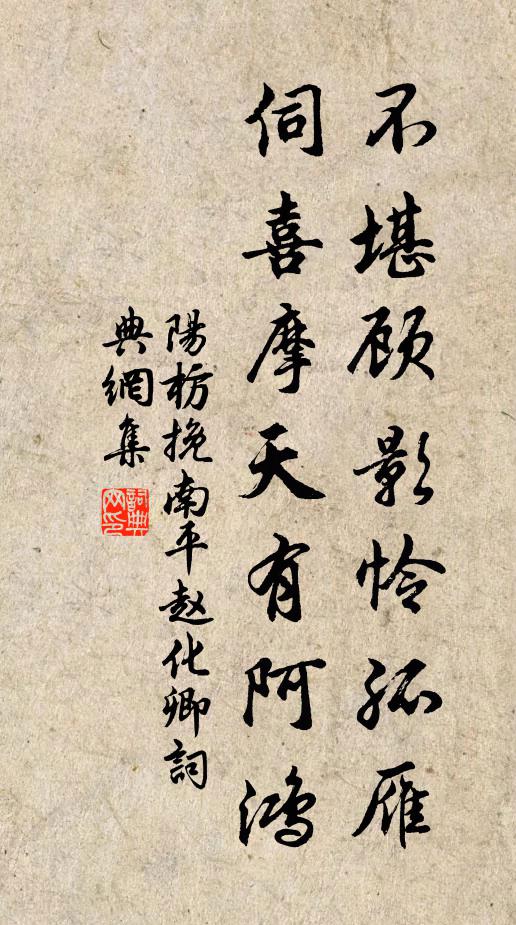 不堪顾影怜孤雁
伺喜摩天有阿鸿
陽枋挽南平赵化卿詞
典網集
詞典网印